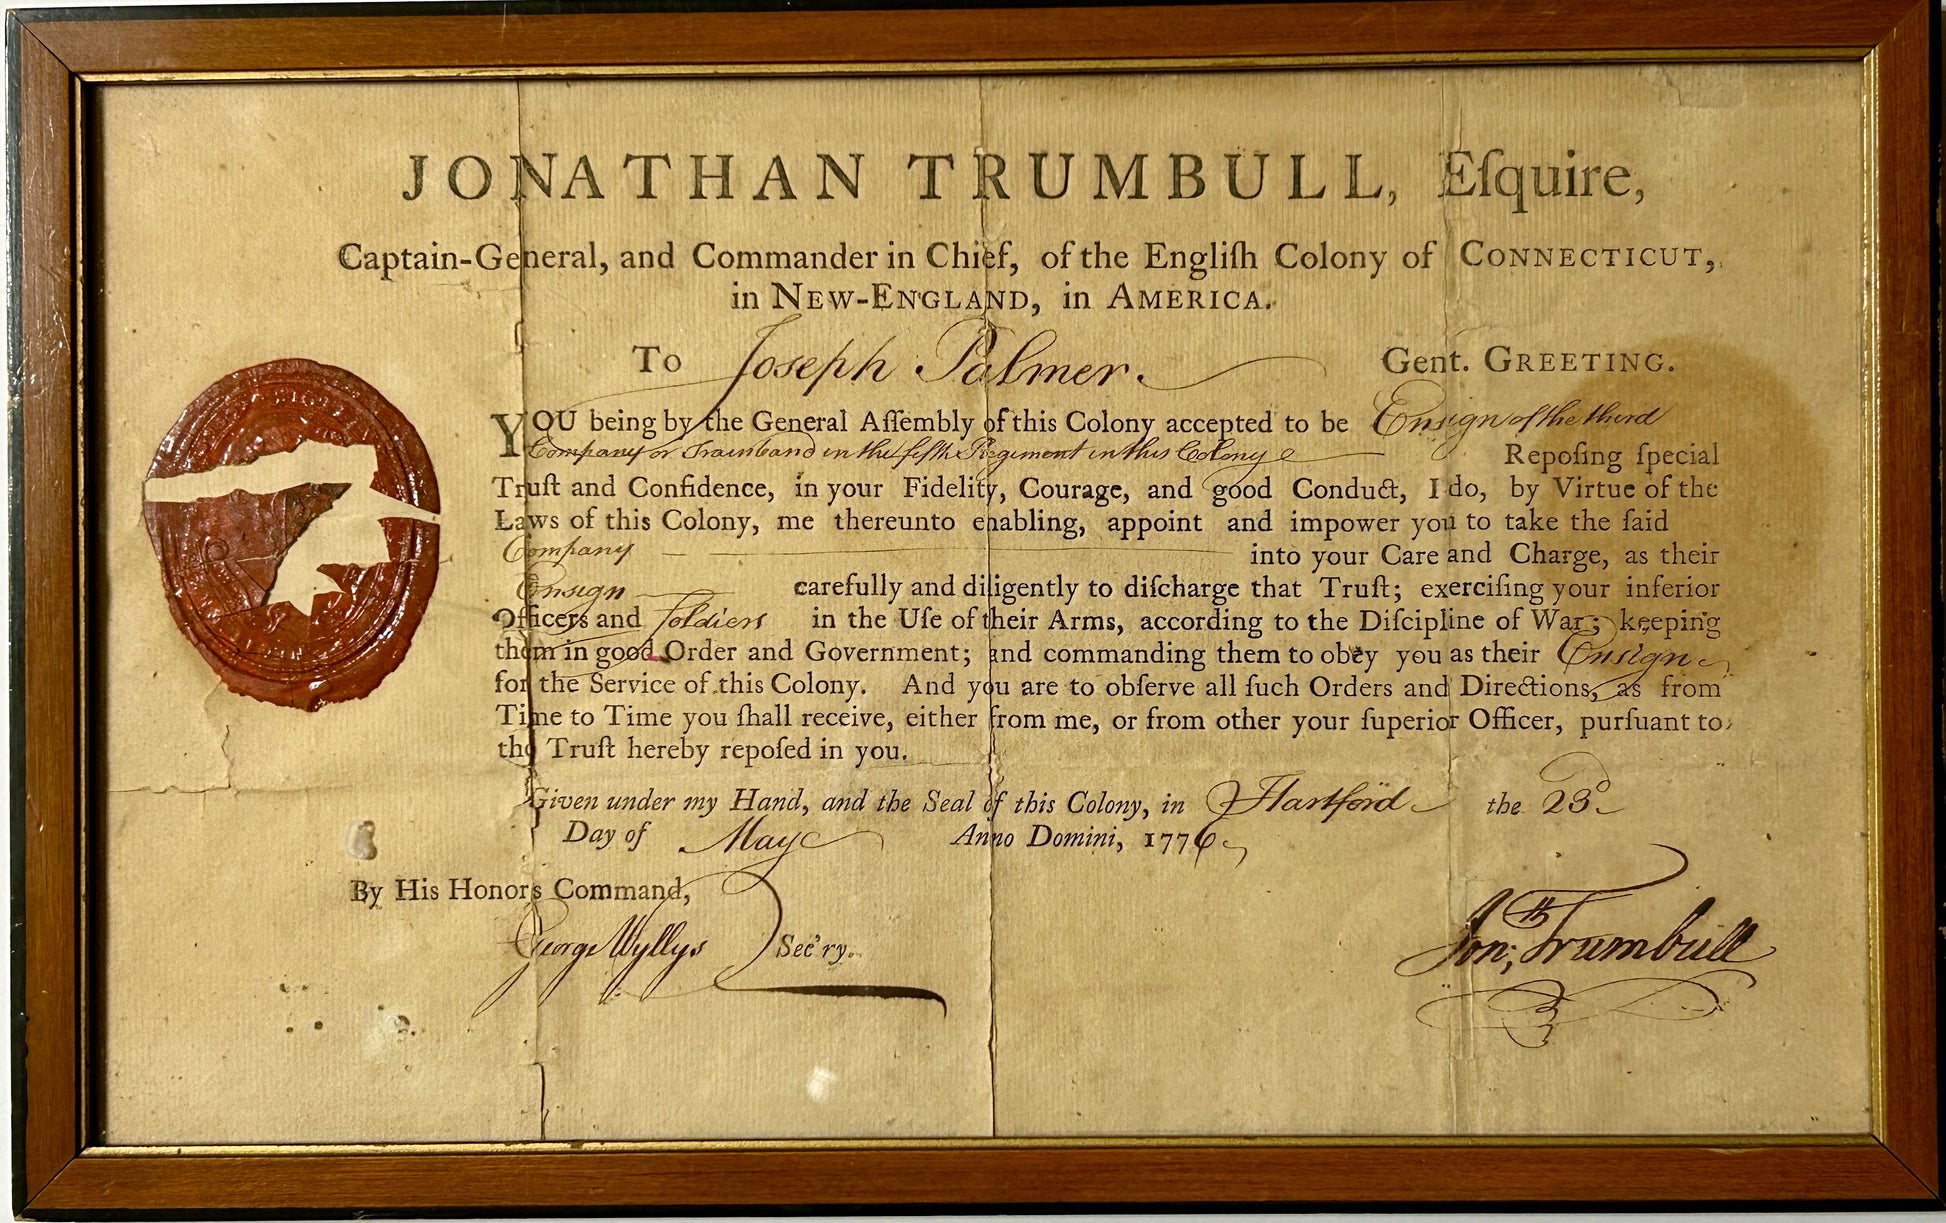 JONATHAN TRUMBULL, Eſquire,
Captain-General, and Commander in Chief, of the Engliſh Colony of CONNECTICUT,
in NEW-ENGLAND, in AMERICA.
To Joseph Palmer. Gent. GREETING.
YOU being by the General Aſſembly of this Colony accepted to be Ensign of the third
Company or Trainband in the fifth Regiment in this Colony Repoſing ſpecial
Truſt and Confidence, in your Fidelity, Courage, and good Conduct, I do, by Virtue of the
Laws of this Colony, me thereunto enabling, appoint and impower you to take the ſaid
Company into your Care and Charge, as their
Ensign carefully and diligently to diſcharge that Truſt; exerciſing your inferior
Officers and Soldiers in the Uſe of their Arms, according to the Diſcipline of War; keeping
them in good Order and Government; and commanding them to obey you as their Ensign
for the Service of this Colony. And you are to obſerve all ſuch Orders and Directions, as from
Time to Time you ſhall receive, either from me, or from other your ſuperior Officer, purſuant to
the Truſt hereby repoſed in you.
Given under my Hand, and the Seal of this Colony, in Hartford the 23d
Day of May Anno Domini, 1776
By His Honors Command,
George Wyllys Sec'ry.
Jonth; Trumbull